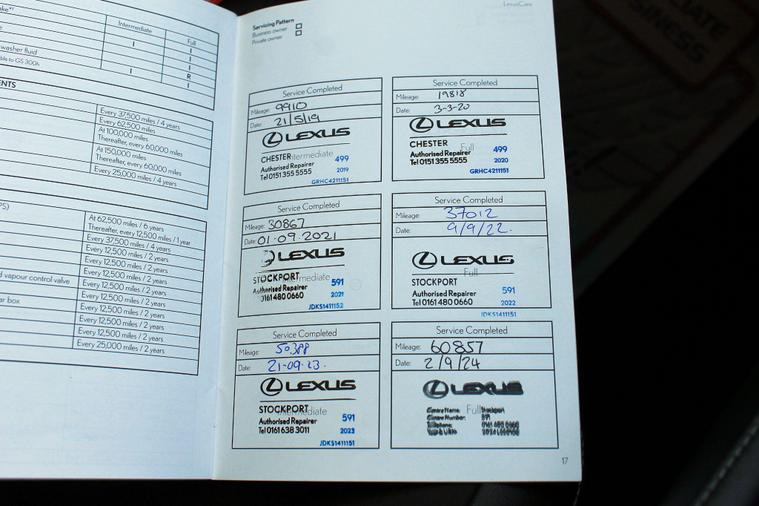 Intermediate Full
I I
I
I
washer fluid I
ble to GS 300h I R
I
ENTS
Every 37,500 miles / 4 years
Every 62,500 miles
At 100,000 miles
Thereafter, every 60,000 miles
At 150,000 miles
Thereafter, every 60,000 miles
Every 25,000 miles / 4 years
PS)
At 62,500 miles / 6 years
Thereafter, every 12,500 miles / 1 year
Every 37,500 miles / 4 years
Every 12,500 miles / 2 years
Every 12,500 miles / 2 years
Every 12,500 miles / 2 years
d vapour control valve Every 12,500 miles / 2 years
Every 12,500 miles / 2 years
ar box Every 12,500 miles / 2 years
Every 12,500 miles / 2 years
Every 12,500 miles / 2 years
Every 25,000 miles / 2 years
LexusCare
Servicing Pattern
Business owner
Private owner
Service Completed
Mileage: 9910
Date: 21/5/19
LEXUS
Intermediate
CHESTER 499
Authorised Repairer
Tel 0151 355 5555 2019
GRHC4211151
Service Completed
Mileage: 19818
Date: 3-3-20
LEXUS
Full
CHESTER 499
Authorised Repairer
Tel 0151 355 5555 2020
GRHC4211151
Service Completed
Mileage: 30867
Date: 01·09·2021
LEXUS
Intermediate
STOCKPORT 591
Authorised Repairer
0161 480 0660 2021
JDKS1411152
Service Completed
Mileage: 37012
Date: 9/9/22.
LEXUS
Full
STOCKPORT 591
Authorised Repairer
Tel 0161 480 0660 2022
JDKS1411151
Service Completed
Mileage: 50388
Date: 21-09-23
LEXUS
Intermediate
STOCKPORT 591
Authorised Repairer
Tel 0161 638 3011 2023
JDKS1411151
Service Completed
Mileage: 60857
Date: 2/9/24
LEXUS
Full
Stockport
17